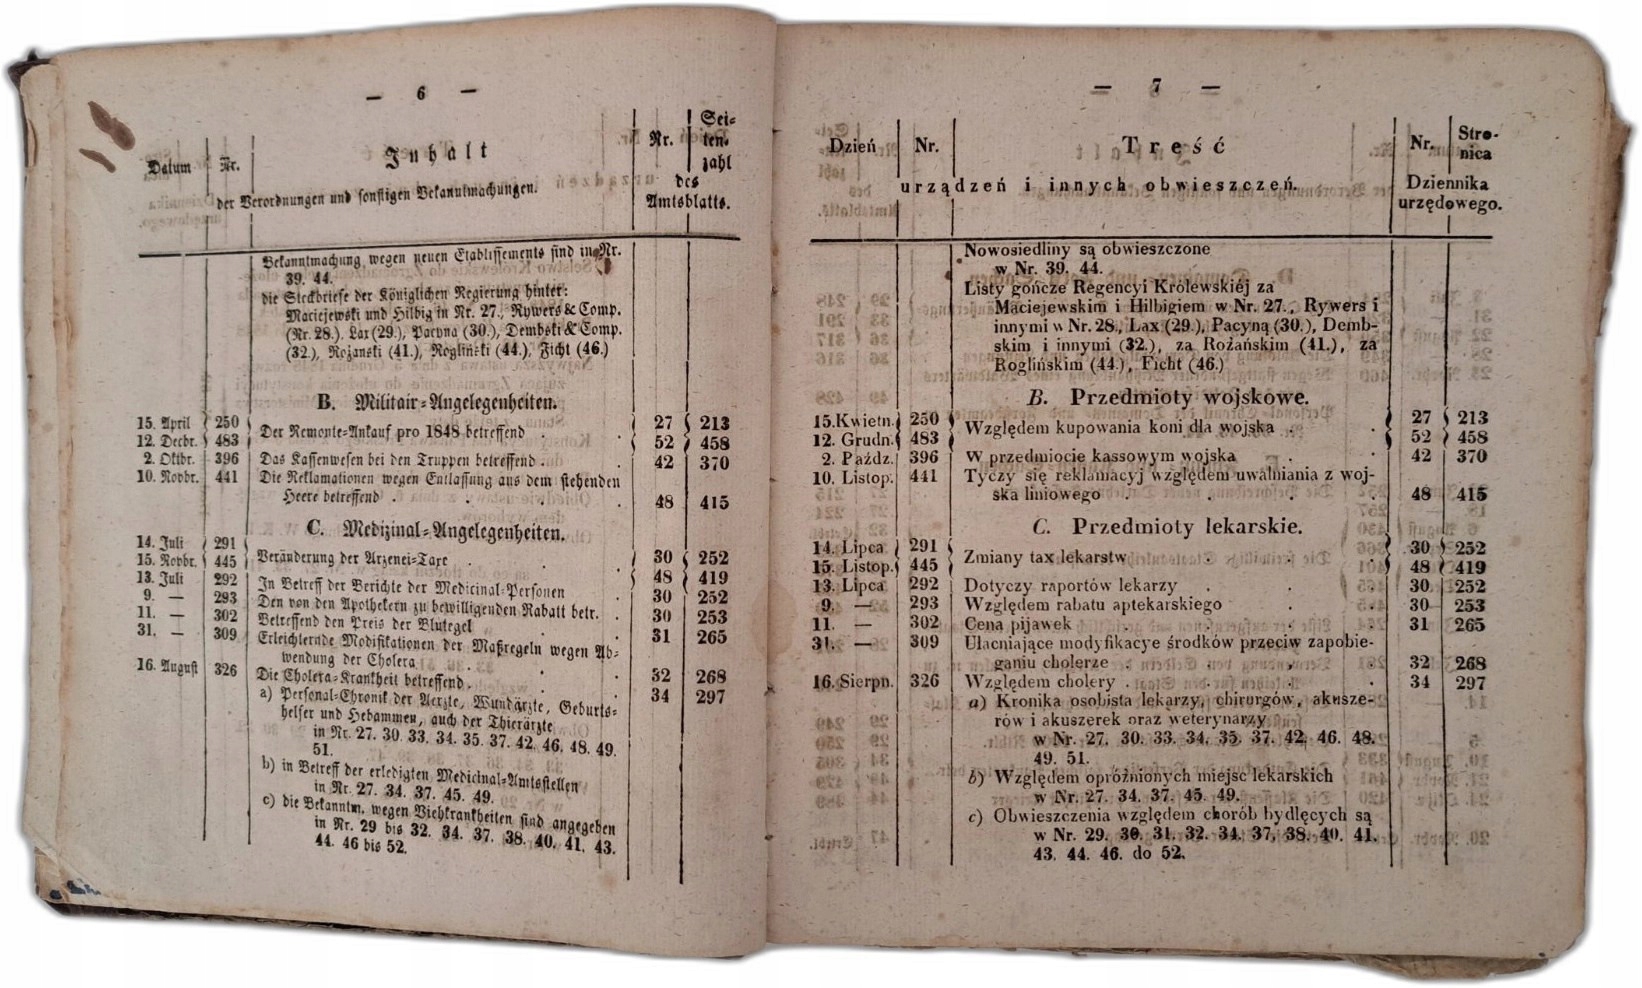 — 6 —
Datum Nr. Inhalt Nr. Sei=
ten=
zahl
der Verordnungen und sonstigen Bekanntmachungen. des
Amtsblatts.
Bekanntmachung wegen neuen Etablissements sind in Nr.
39. 44.
die Steckbriefe der Königlichen Regierung hinter:
Maciejewski und Hilbig in Nr. 27., Rywers & Comp.
(Nr. 28.). Lax (29.), Pacyna (30.), Dembski & Comp.
(32.), Rożanski (41.), Rogliński (44.), Ficht (46.)
B. Militair=Angelegenheiten.
15. April 250 27 213
12. Decbr. 483 Der Remonte=Ankauf pro 1848 betreffend . 52 458
2. Oktbr. 396 Das Kassenwesen bei den Truppen betreffend . . 42 370
10. Novbr. 441 Die Reklamationen wegen Entlassung aus dem stehenden
Heere betreffend . . . 48 415
C. Medizinal=Angelegenheiten.
14. Juli 291 30 252
15. Novbr. 445 Veränderung der Arzenei=Taxe . . 48 419
13. Juli 292 In Betreff der Berichte der Medicinal=Personen 30 252
9. — 293 Den von den Apothekern zu bewilligenden Rabatt betr. . 30 253
11. — 302 Betreffend den Preis der Blutegel . . 31 265
31. — 309 Erleichternde Modifikationen der Maßregeln wegen Ab=
wendung der Cholera . . . 32 268
16. August 326 Die Cholera=Krankheit betreffend . . . 34 297
a) Personal=Chronik der Aerzte, Wundärzte, Geburts=
helfer und Hebammen, auch der Thierärzte
in Nr. 27. 30. 33. 34. 35. 37. 42. 46. 48. 49.
51.
b) in Betreff der erledigten Medicinal=Amtsstellen
in Nr. 27. 34. 37. 45. 49.
c) die Bekanntm. wegen Viehkrankheiten sind angegeben
in Nr. 29 bis 32. 34. 37. 38. 40. 41. 43.
44. 46 bis 52.
— 7 —
Dzień Nr. Treść Nr. Stro-
nica
urządzeń i innych obwieszczeń. Dziennika
urzędowego.
Nowosiedliny są obwieszczone
w Nr. 39. 44.
Listy gończe Regencyi Królewskiéj za
Maciejewskim i Hilbigiem w Nr. 27., Rywers i
innymi w Nr. 28., Lax (29.), Pacyną (30.), Demb-
skim i innymi (32.), za Rożańskim (41.), za
Roglińskim (44.), Ficht (46.)
B. Przedmioty wojskowe.
15. Kwietn. 250 27 213
12. Grudn. 483 Względem kupowania koni dla wojska . . 52 458
2. Paźdz. 396 W przedmiocie kassowym wojska . . 42 370
10. Listop. 441 Tyczy się reklamacyj względem uwalniania z woj-
ska liniowego . . . 48 415
C. Przedmioty lekarskie.
14. Lipca 291 30 252
15. Listop. 445 Zmiany tax lekarstw . . . 48 419
13. Lipca 292 Dotyczy raportów lekarzy . . 30. 252
9. — 293 Względem rabatu aptekarskiego . . 30 253
11. — 302 Cena pijawek . . . . 31 265
31. — 309 Ułacniające modyfikacye środków przeciw zapobie-
ganiu cholerze . . . 32 268
16. Sierpn. 326 Względem cholery . . . . 34 297
a) Kronika osobista lekarzy, chirurgów, akusze-
rów i akuszerek oraz weterynarzy
w Nr. 27. 30. 33. 34. 35. 37. 42. 46. 48.
49. 51.
b) Względem opróżnionych miejsc lekarskich
w Nr. 27. 34. 37. 45. 49.
c) Obwieszczenia względem chorób bydlęcych są
w Nr. 29. 30. 31. 32. 34. 37. 38. 40. 41.
43. 44. 46. do 52.